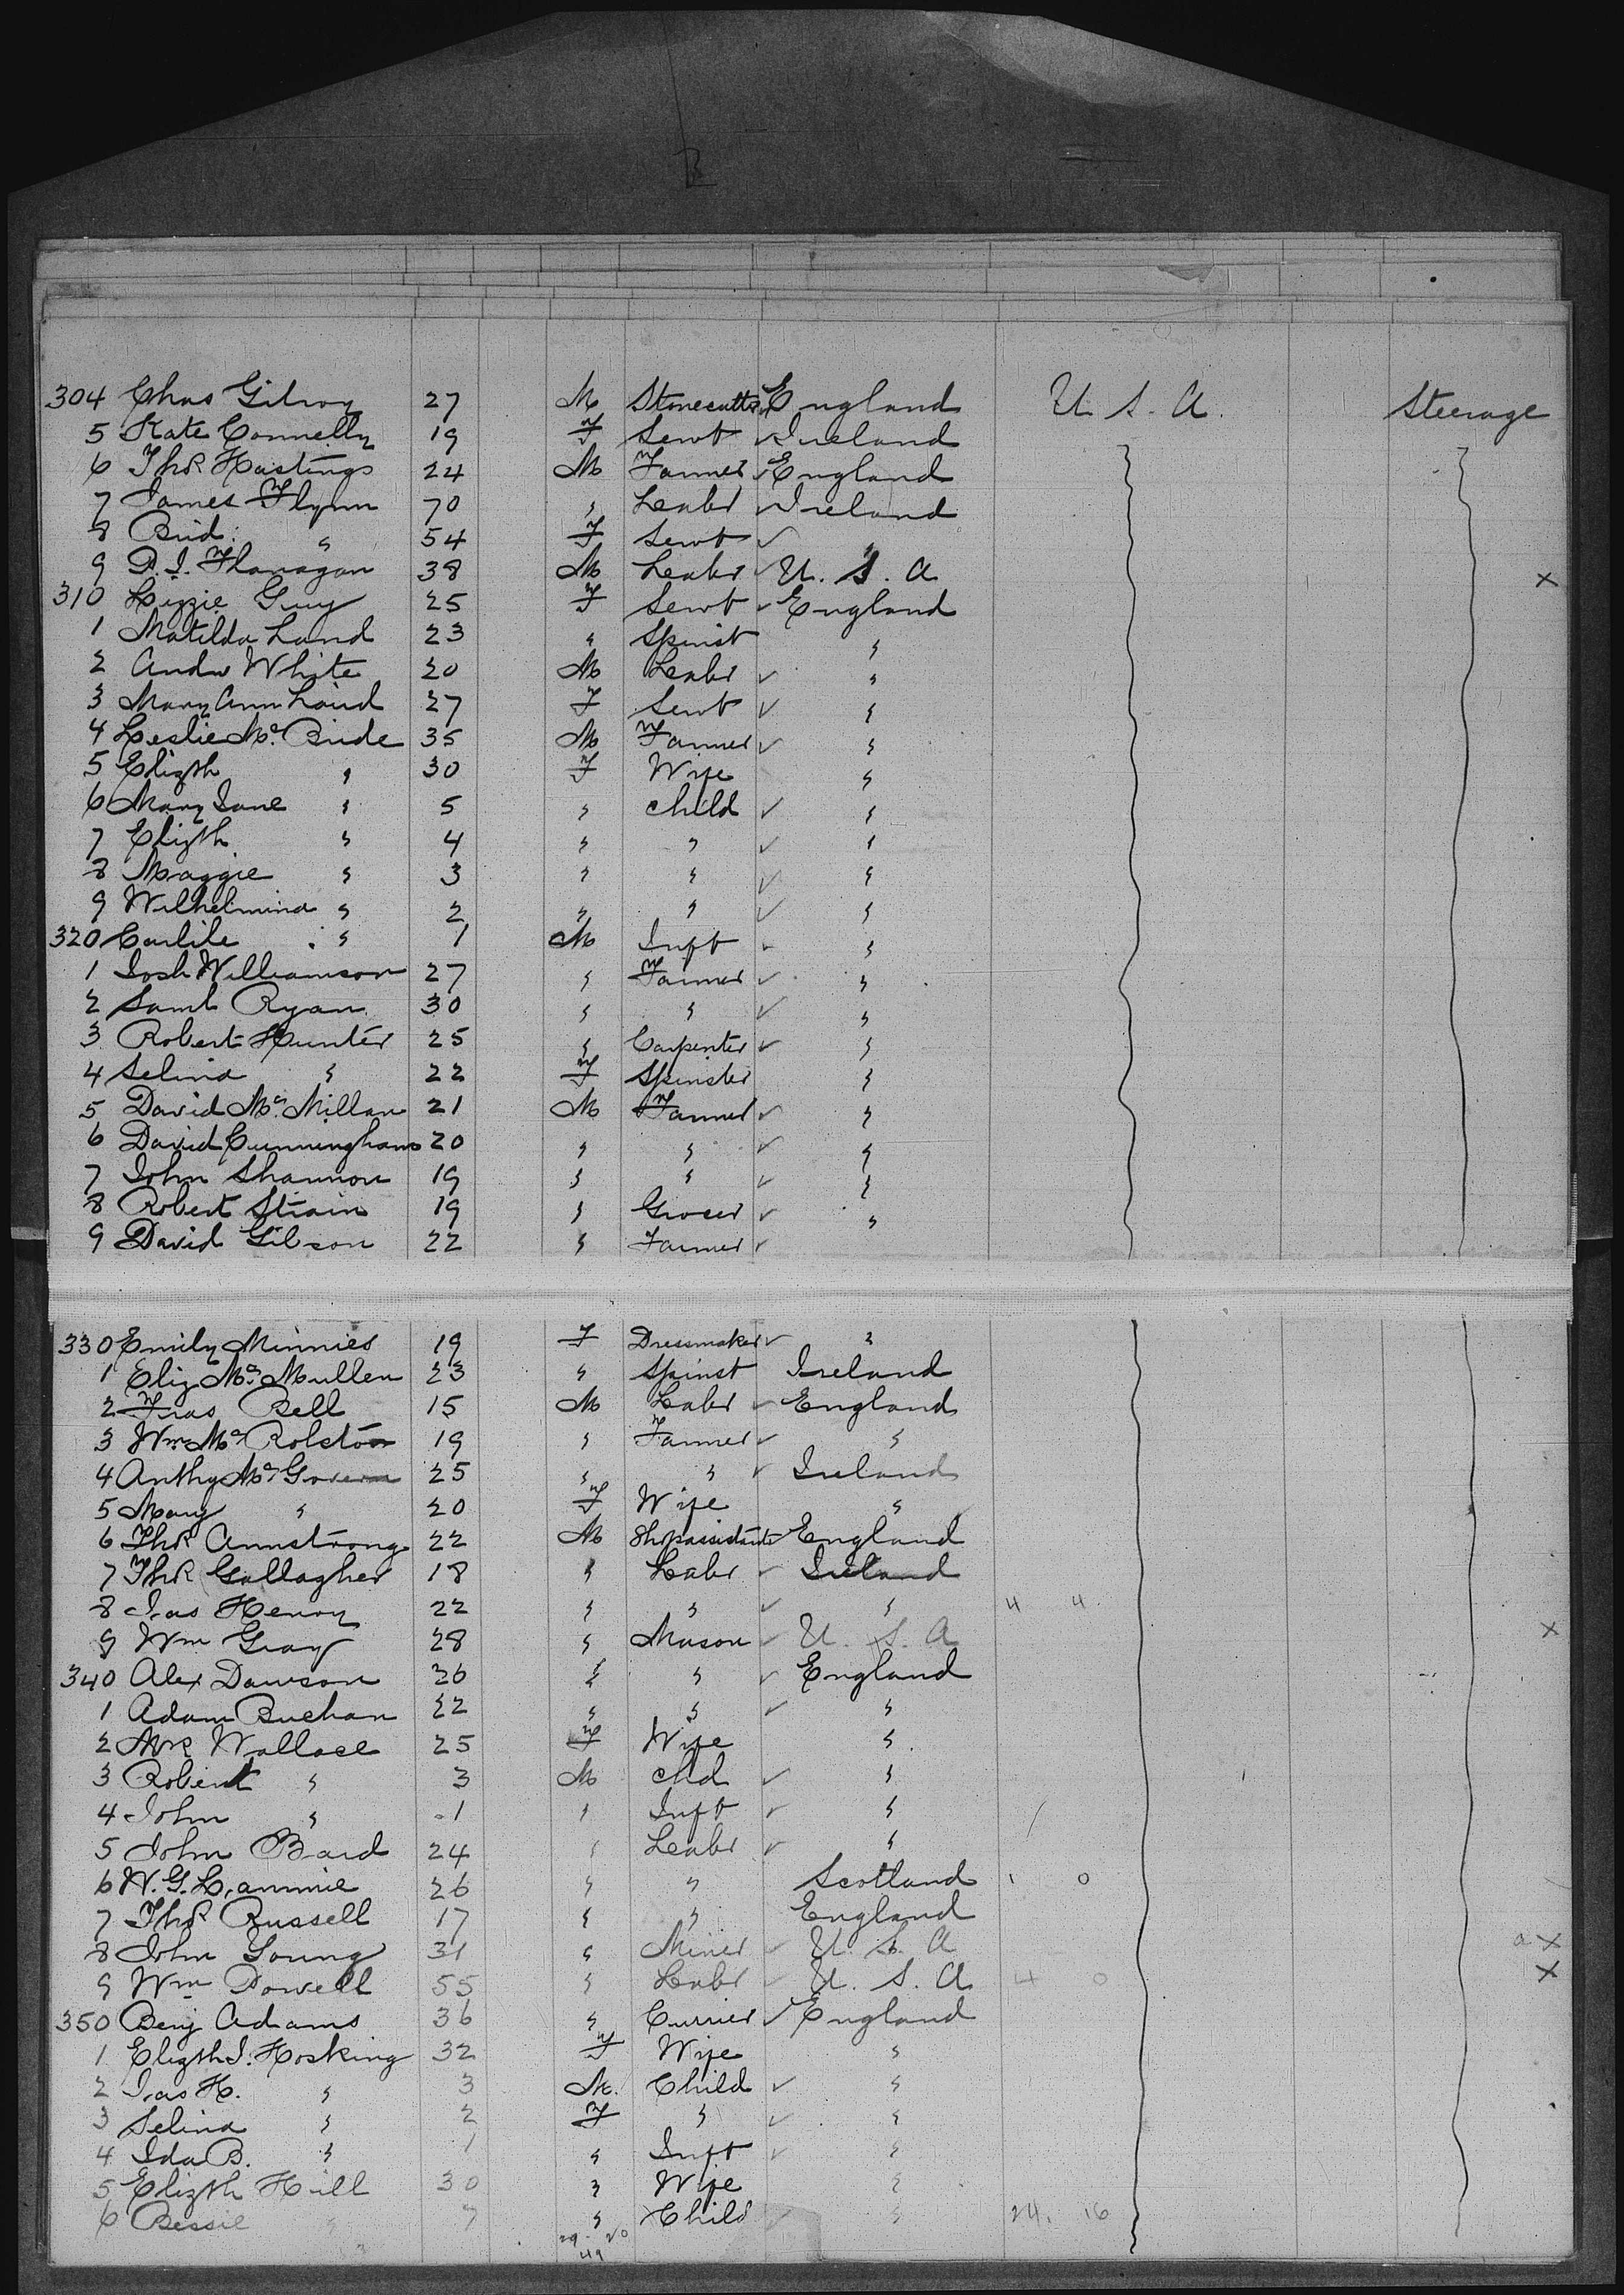 304 Chas Gilroy 27 M Stonecutter England U. S. A. Steerage
5 Kate Connelly 19 F Servt ✓ Ireland
6 Thos Hastings 24 M Farmer ✓ England
7 James Flynn 70 " Labr ✓ Ireland
8 Brid. " 54 F Servt ✓ "
9 P. J. Flanagan 38 M Labr ✓ U. S. A X
310 Lizzie Guy 25 F Servt ✓ England
1 Matilda Land 23 " Spinst "
2 Andw White 20 M Labr ✓ "
3 Mary Ann Laird 27 F Servt ✓ "
4 Leslie Mc Bride 35 M Farmer ✓ "
5 Elizth " 30 F Wife "
6 Mary Jane " 5 " child ✓ "
7 Elizth " 4 " " ✓ "
8 Maggie " 3 " " ✓ "
9 Wilhelmina " 2 " " ✓ "
320 Carlile " 1 M Inft ✓ "
1 Josh Williamson 27 " Farmer ✓ "
2 Saml Ryan 30 " " ✓ "
3 Robert Hunter 25 " Carpenter ✓ "
4 Selina " 22 F Spinster "
5 David Mc Millan 21 M Farmer ✓ "
6 David Cunningham 20 " " ✓ "
7 John Shannon 19 " " ✓ "
8 Robert Strain 19 " Grocer ✓ "
9 David Gibson 22 " Farmer ✓
330 Emily Minnies 19 F Dressmaker ✓ "
1 Eliz Mc Mullen 23 " Spinst Ireland
2 Fras Bell 15 M Labr ✓ England
3 Wm Mc Rolston 19 " Farmer ✓ "
4 Anthy Mc Govern 25 " " ✓ Ireland
5 Mary " 20 F Wife "
6 Thos Armstrong 22 M Shopassistant England
7 Thos Gallagher 18 " Labr ✓ Ireland
8 Jas Henry 22 " " ✓ " 4 4
9 Wm Gray 28 " Mason ✓ U. S. A X
340 Alex Dawson 26 " " ✓ England
1 Adam Buchan 22 " " ✓ "
2 Mrs Wallace 25 F Wife "
3 Robert " 3 M chd ✓ "
4 John " 1 " Inft ✓ "
5 John Baid 24 " Labr ✓ "
6 W. G. Lammie 26 " " Scotland 1 0
7 Thos Russell 17 " " England
8 John Young 31 " Miner ✓ U. S. A a X
9 Wm Powell 55 " Labr ✓ U. S. A 4 0 X
350 Benj Adams 36 " Currier ✓ England
1 Elizth J. Hosking 32 F Wife "
2 Jas H. " 3 M. Child ✓ "
3 Selina " 2 F " ✓ "
4 Ida B. " 1 " Inft ✓ "
5 Elizth Hill 30 " Wife "
6 Bessie " 7 " Child ✓ " 24. 16
29 20
49